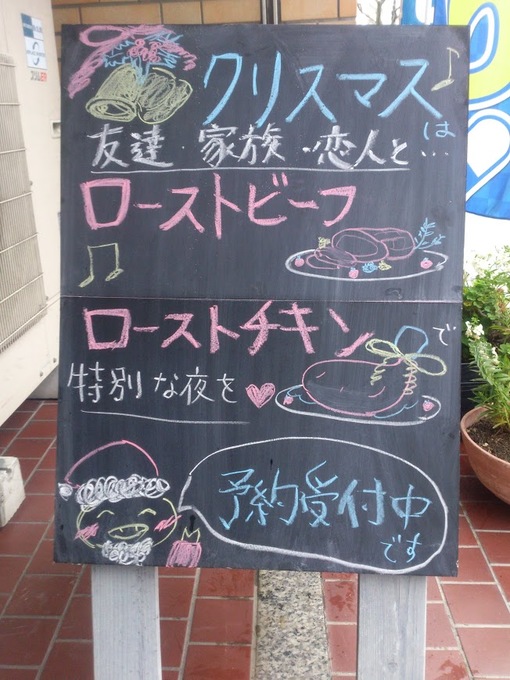 クリスマス
は…
友達・家族・恋人と
ローストビーフ
ローストチキン
で
特別な夜を
予約受付中
です